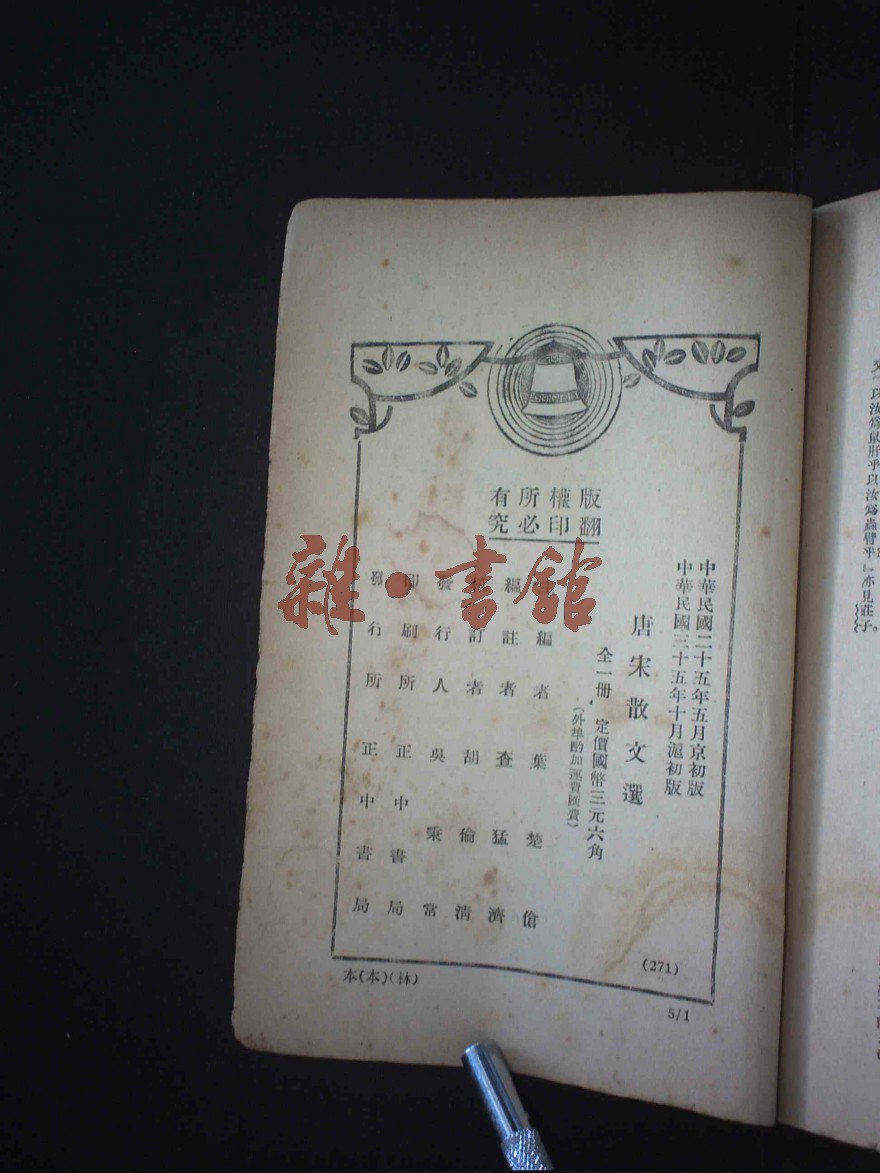 版權所有
翻印必究
中華民國二十五年五月京初版
中華民國三十五年十月滬初版
唐宋散文選
全一冊，定價國幣三元六角
（外埠酌加運費匯費）
編者 葉楚傖
編註者 查猛濟
訂者 胡倫清
發行人 吳秉常
印刷所 正中書局
發行所 正中書局
(271)
本(本)(林)
5/1
雜·書館
以汝為鼠肝乎以汝為蟲臂乎』亦見莊子。